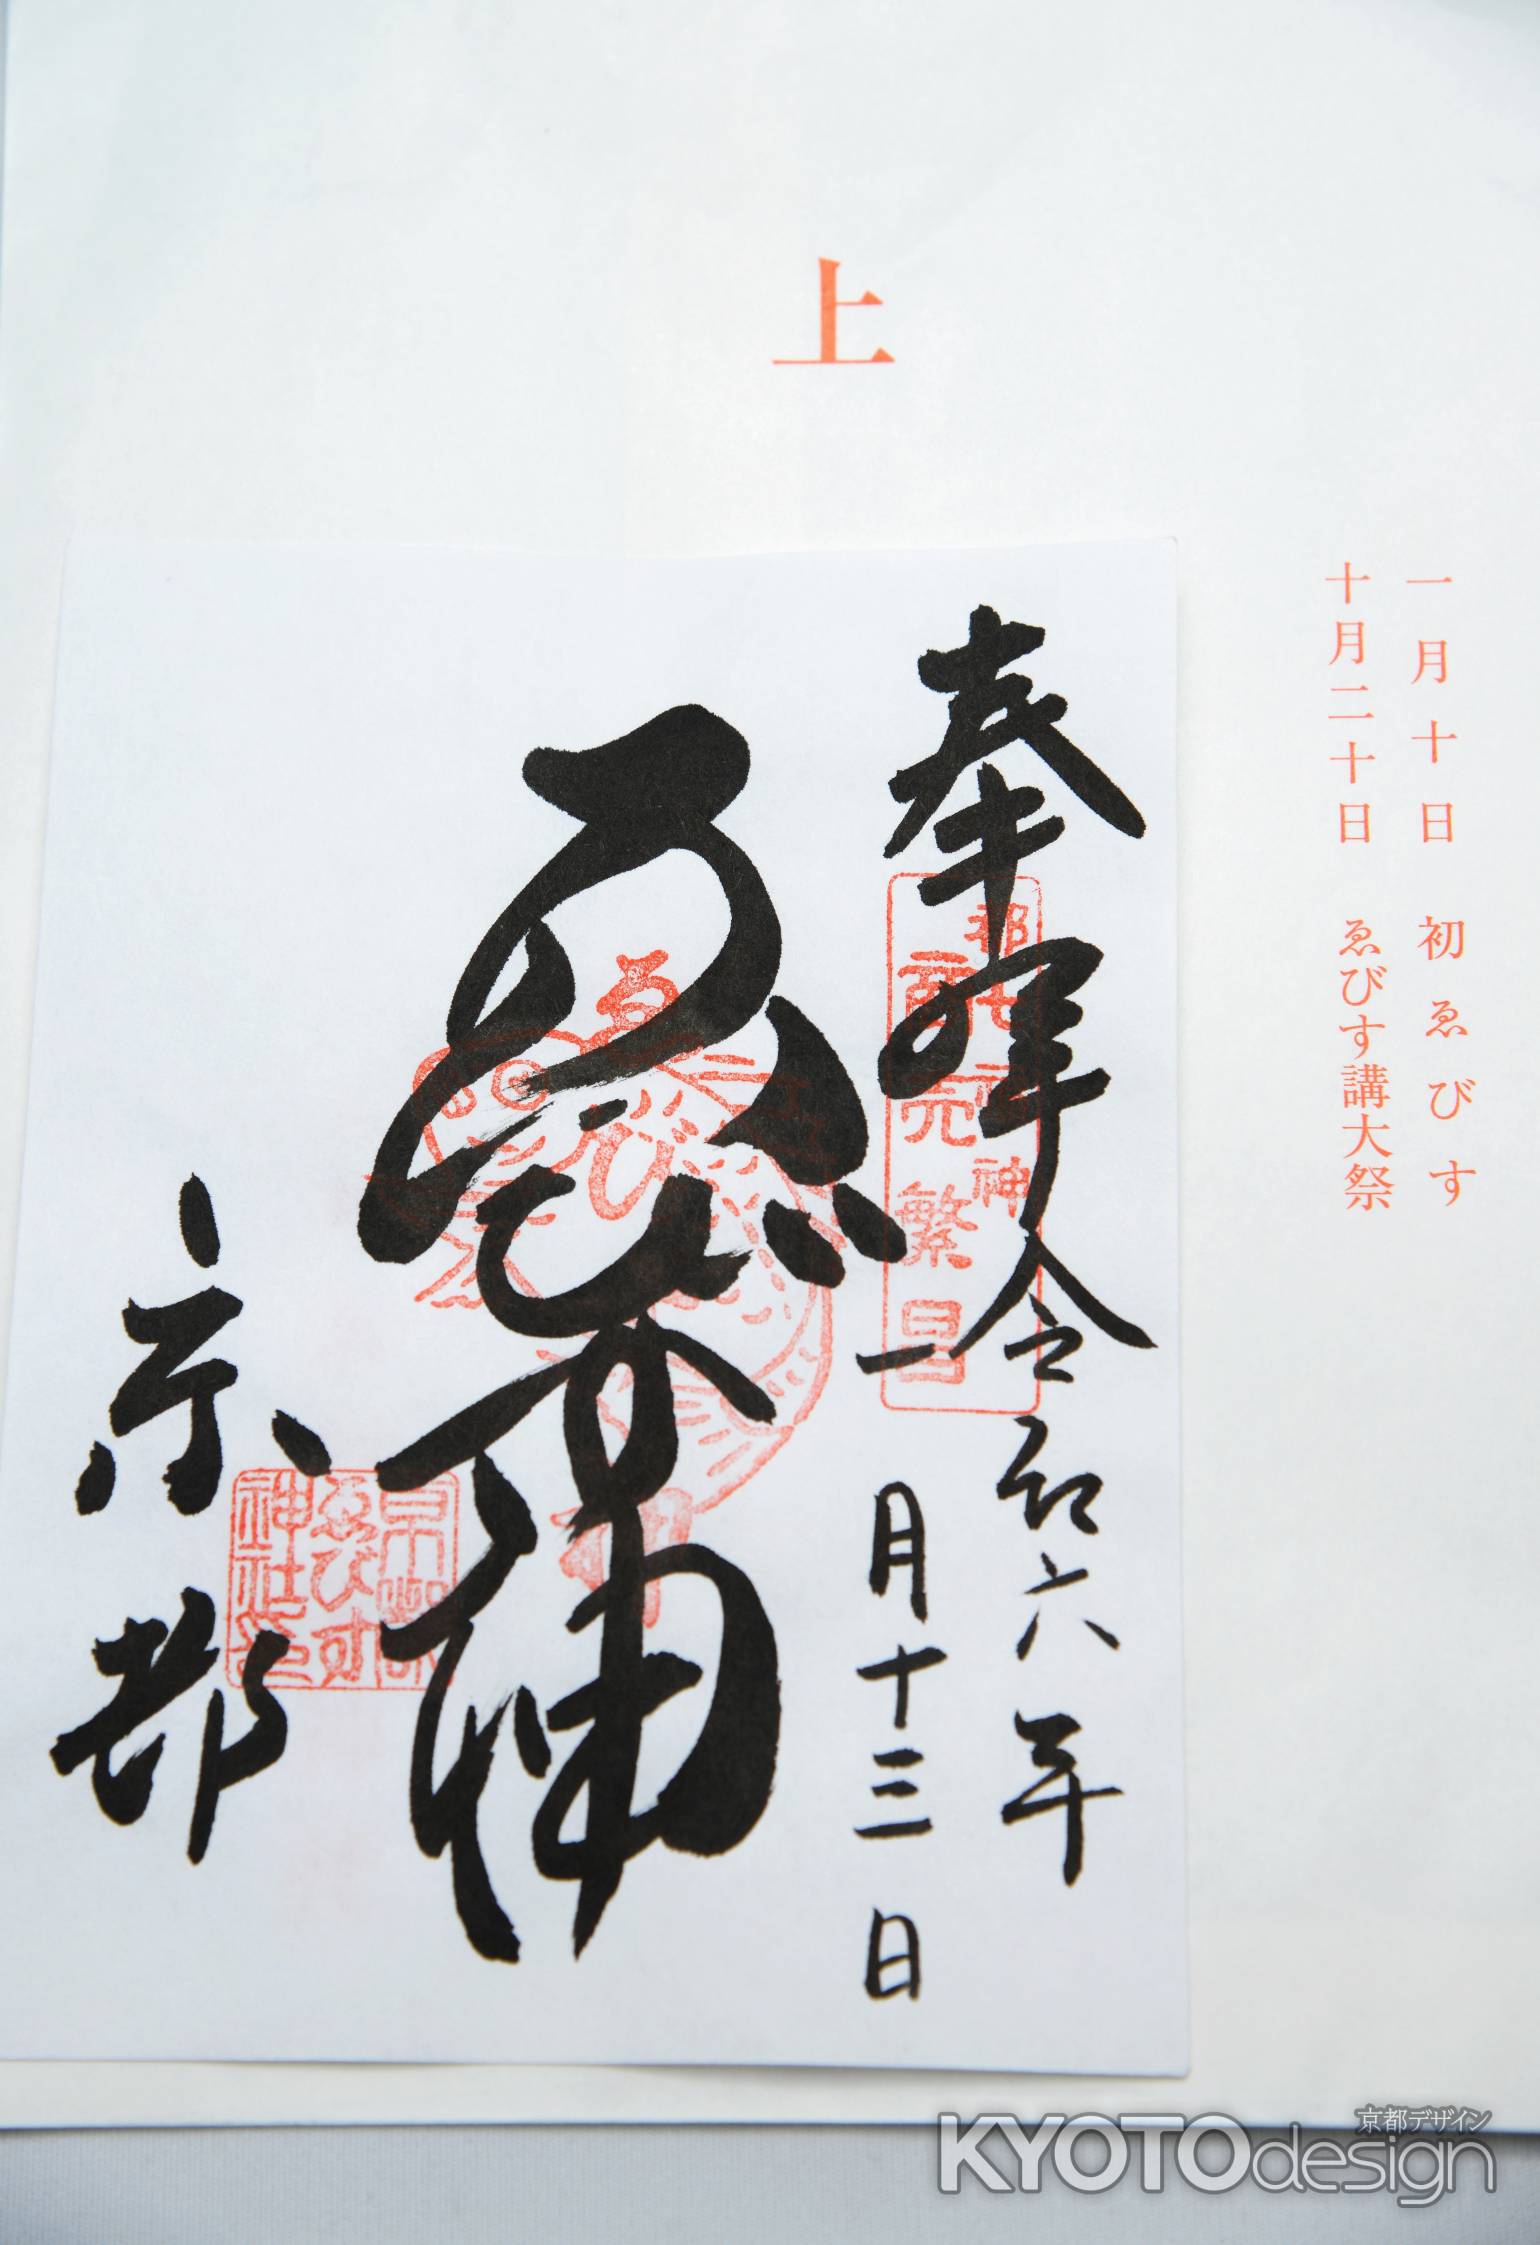 上
一月十日 初ゑびす
十月二十日 ゑびす講大祭
奉拝 令和六年
一月十三日
都七福神
商売繁昌
ゑび
京都
ゑびす
神社印
京都デザイン
KYOTOdesign